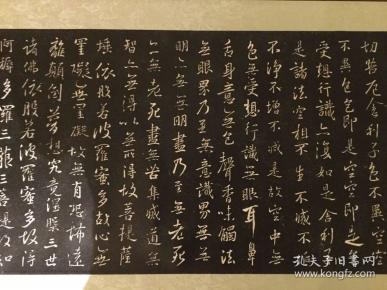 切苦厄舍利子色不異空空
不異色色即是空空即是色
受想行識亦復如是舍利子
是諸法空相不生不滅不垢
不淨不增不減是故空中無
色無受想行識無眼耳鼻
舌身意無色聲香味觸法
無眼界乃至無意識界無無
明亦無無明盡乃至無老死
亦無老死盡無苦集滅道無
智亦無得以無所得故菩提薩
埵依般若波羅蜜多故心無
罣礙無罣礙故無有恐怖遠
離顛倒夢想究竟涅槃三世
諸佛依般若波羅蜜多故得
阿耨多羅三藐三菩提故知
孔夫子旧书网